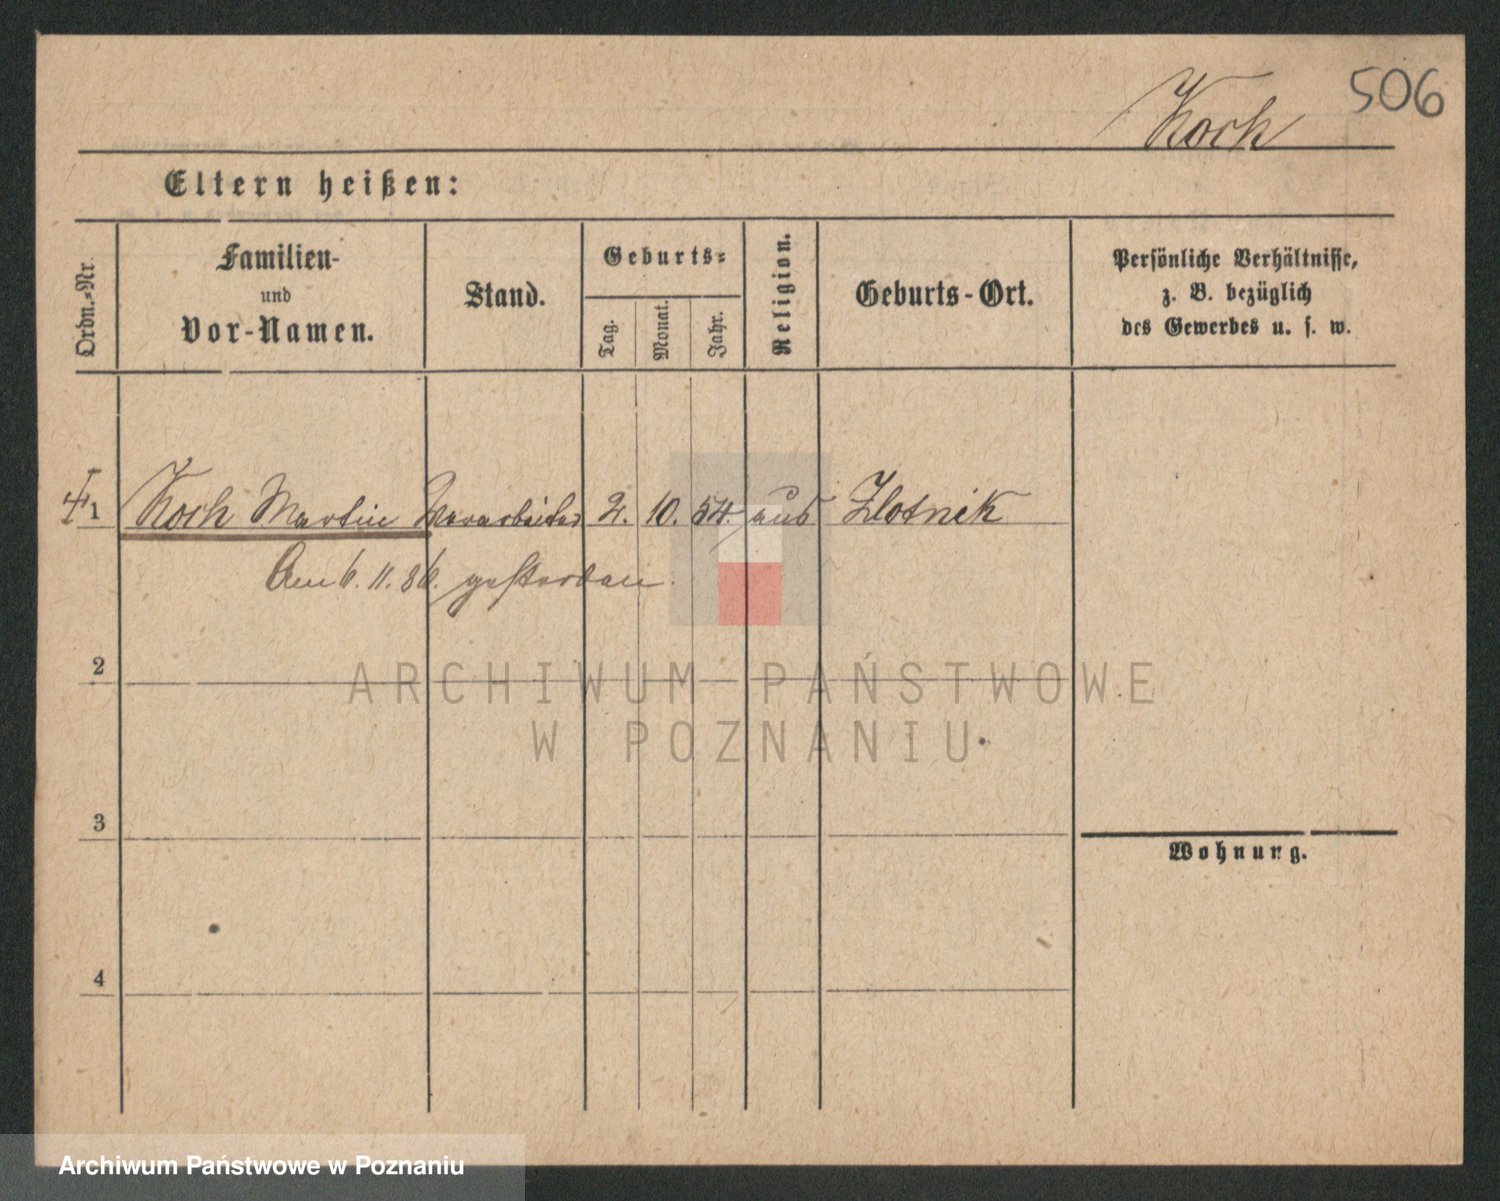 506
Koch
Eltern heißen:
Ordn.=Nr.
Familien-
und
Vor-Namen.
Stand.
Geburts=
Tag.
Monat.
Jahr.
Religion.
Geburts-Ort.
Persönliche Verhältnisse,
z. B. bezüglich
des Gewerbes u. s. w.
1 Koch Martin 2. 10. 54. aus Zlotnik
Am 6. 11. 86. gestorben.
2
ARCHIWUM PAŃSTWOWE
W POZNANIU
3
Wohnung.
4
Archiwum Państwowe w Poznaniu